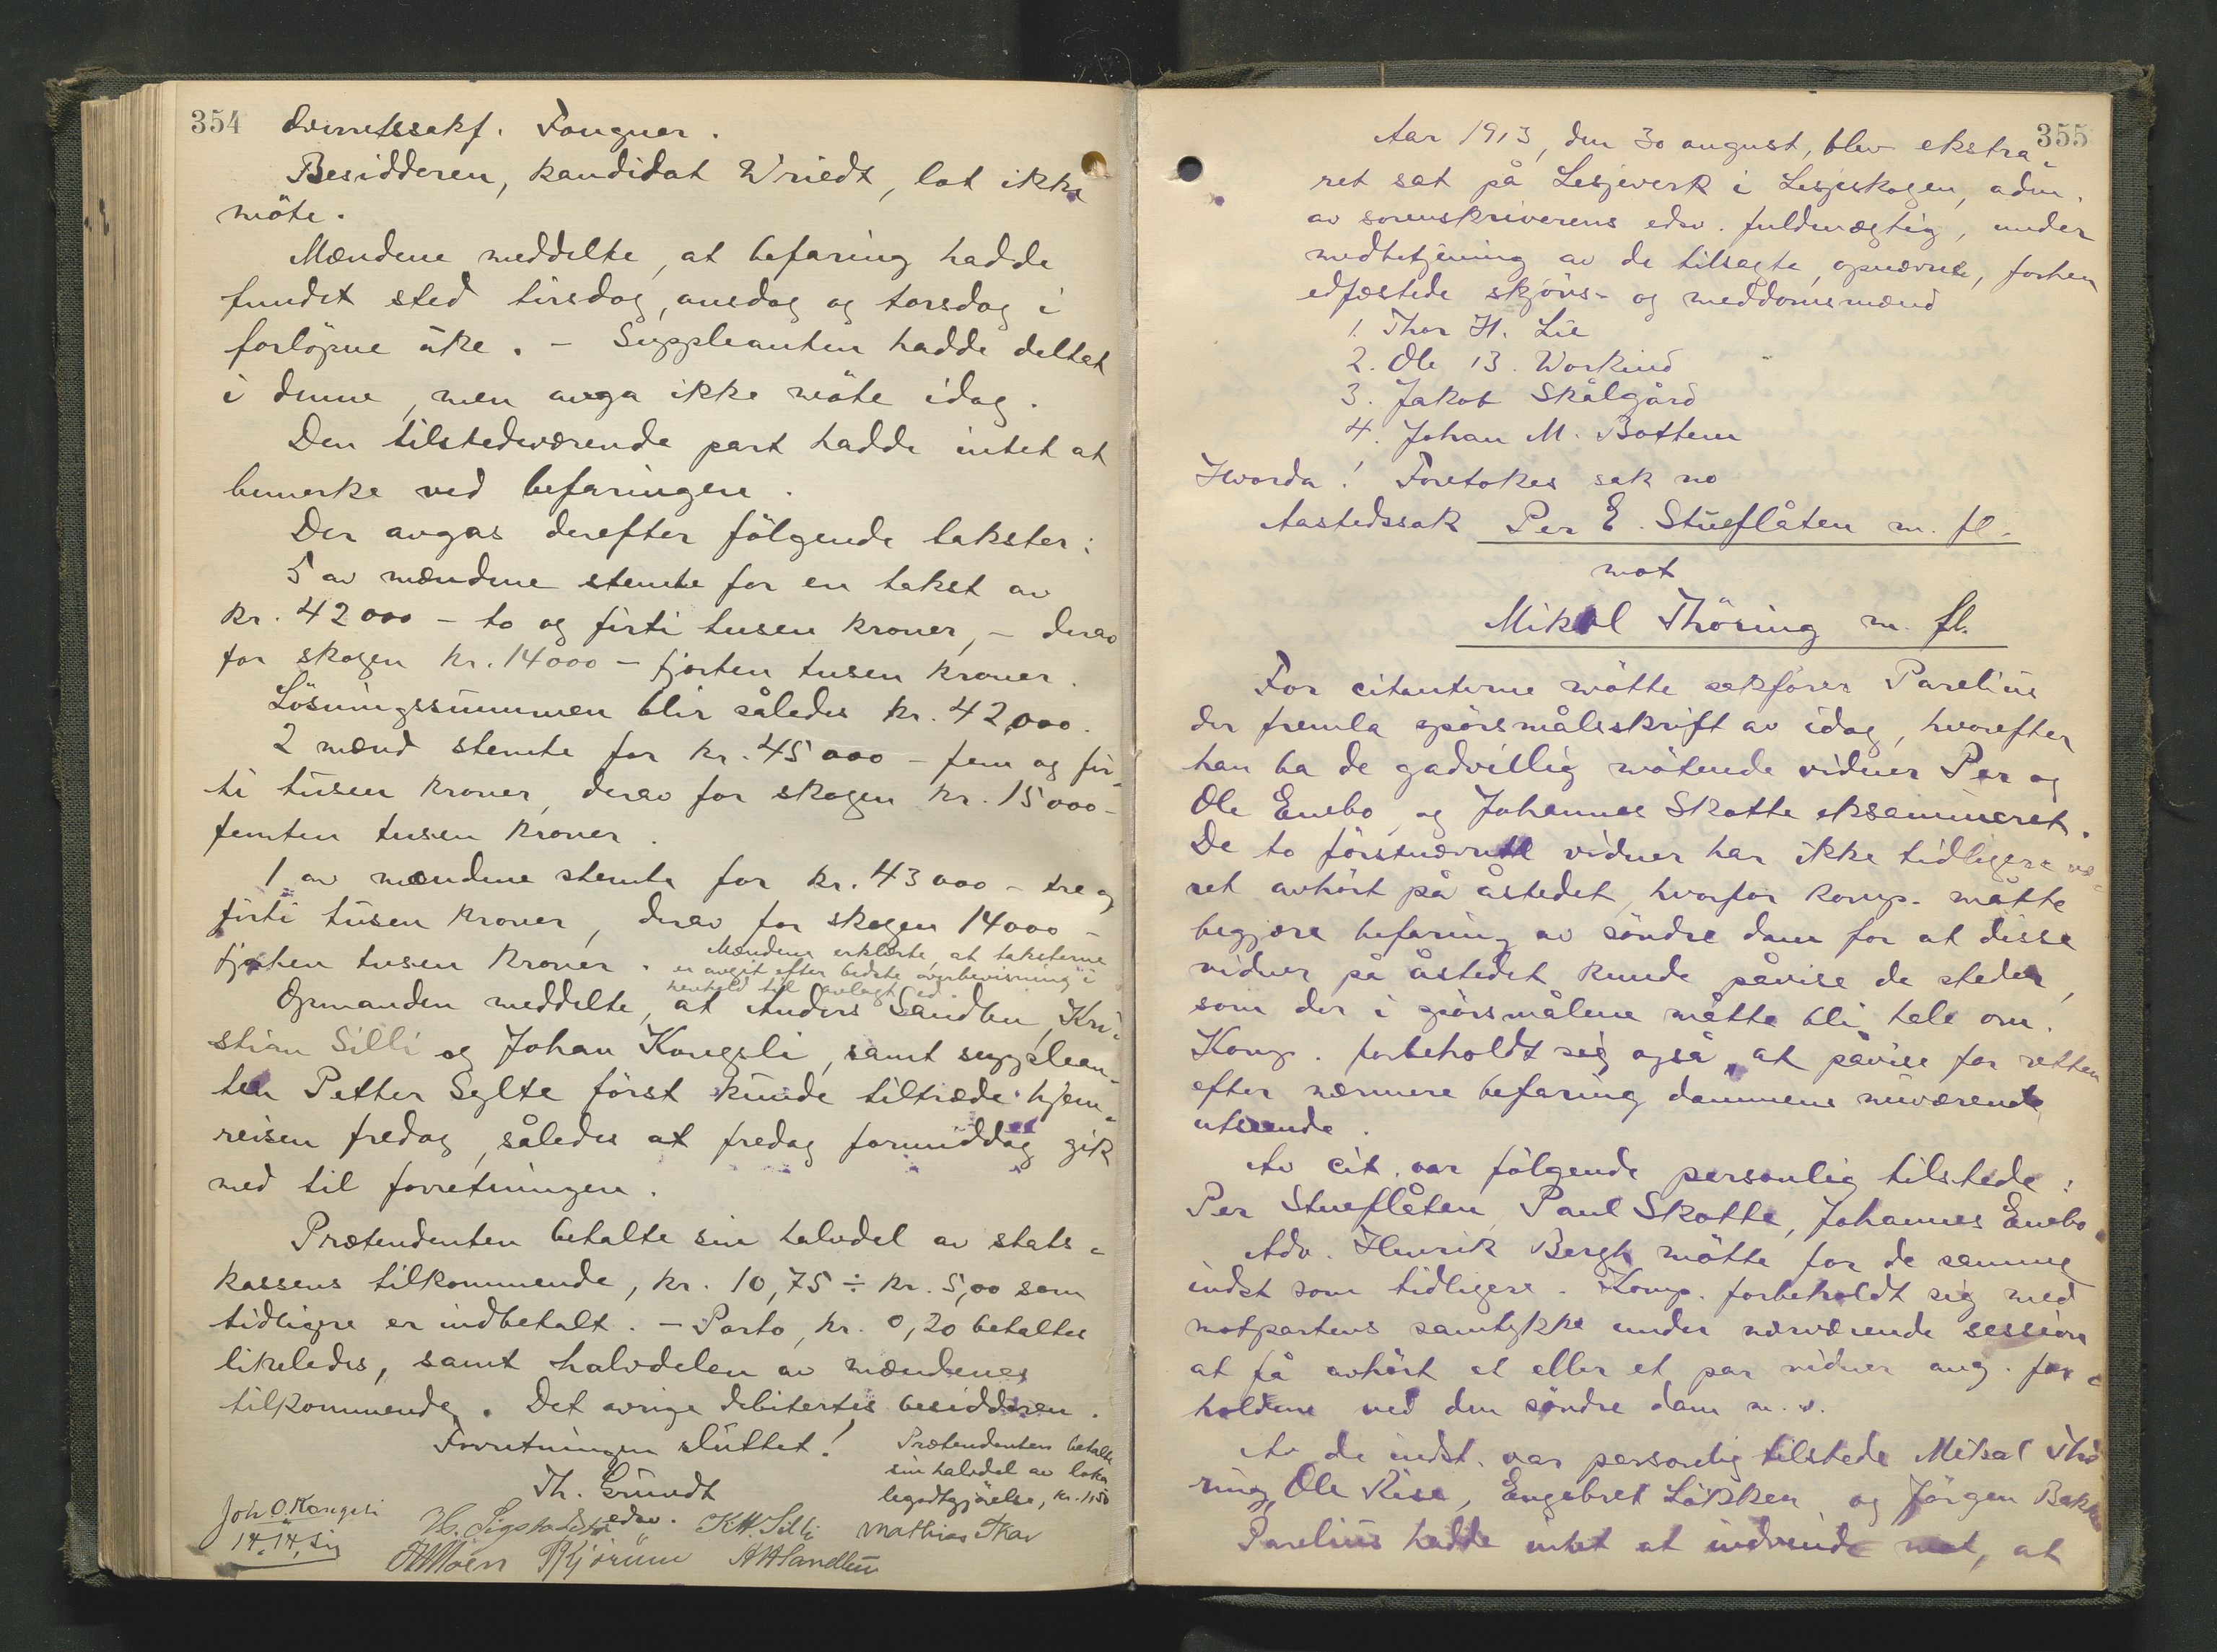 354 Overretssakf. Fougner.
Besidderen, kandidat Wriedt, lot ikke
möte.
Mændene meddelte, at befaring hadde
fundet sted tirsdag, onsdag og torsdag i
forlöpne uke. - Suppleanten hadde deltat
i denne, men avga ikke möte idag.
Den tilstedeværende part hadde intet at
bemerke ved befaringen.
Der avgas derefter fölgende takster:
5 av mændene stemte for en takst av
kr. 42 000 - to og firti tusen kroner, - derav
for skogen kr. 14 000 - fjorten tusen kroner.
Lösningssummen blir således kr. 42,000.
2 mænd stemte for kr. 45 000 - fem og fir-
ti tusen kroner, derav for skogen kr. 15 000 -
femten tusen kroner.
1 av mændene stemte for kr. 43 000 - tre og
firti tusen kroner, derav for skogen 14 000 -
fjorten tusen kroner. Mændene erklærte, at taksterne
er avgit efter bedste overbevisning i
henhold til avlagt ed.
Opmanden meddelte, at Anders Sandbu, Kri-
stian Silli og Johan Kongsli, samt supplean-
ten Petter Sylte först kunde tiltræde hjem-
reisen fredag, således at fredag formiddag gik
med til forretningen.
Prætendenten betalte sin halvdel av stats-
kassens tilkommende, kr. 10,75 ÷ kr. 5,00 som
tidligere er indbetalt. - Porto, kr. 0,20 betaltes
likeledes, samt halvdelen av mændenes
tilkommende. Det övrige debitertes besidderen.
Forretningen sluttet! Prætendenten betalte
sin halvdel av loka
legodtgjörelse, kr. 1,50
Th. Grundt
edsv.
Joh O. Kongsli
14. 14, sig
H. Sigstadstö K.H. Silli Mathias Skar
Kjörum A H Sandbu
355
Aar 1913, den 30 august, blev ekstra-
ret sat på Lesjeverk i Lesjeskogen, adm.
av sorenskriverens edsv. fuldmægtig, under
medbetjening av de tilsagte, opnævnte, forhen
edfæstede skjöns- og meddomsmænd
1. Thor H. Lie
2. Ole B. Workind
3. Jakob Skålgård
4. Johan M. Bottem
Hvorda! Foretokes sak no
Aastedssak Per E. Stueflåten m. fl.
mot
Mikal Thöring m. fl.
For citanterne mötte sakförer Parelius
der fremla spörsmålsskrift av idag, hvorefter
han ba de godvillig mötende vidner Per og
Ole Enebo, og Johannes Skotte eksamineret.
De to förstnævnte vidner har ikke tidligere væ-
ret avhört på åstedet, hvorfor komp. måtte
begjære befaring av söndre dam for at disse
vidner på åstedet kunde påvise de steder,
som der i spörsmålene måtte bli tale om.
Komp. forbeholdt sig også, at påvise for retten
efter nærmere befaring dammens nuværende
utseende.
Av cit. var fölgende personlig tilstede:
Per Stueflåten, Paul Skotte, Johannes Enebo.
Adv. Henrik Bergh mötte for de samme
indst som tidligere. Komp. forbeholdt sig med
motpartens samtykke under nærværende session
at få avhört et eller et par vidner ang. for-
holdene ved den söndre dam m. v.
Av de indst. var personlig tilstede Mikal Thö
ring, Ole Rise, Engebret Lökken og Jörgen Bakke
Parelius hadde intet at indvende mot, at